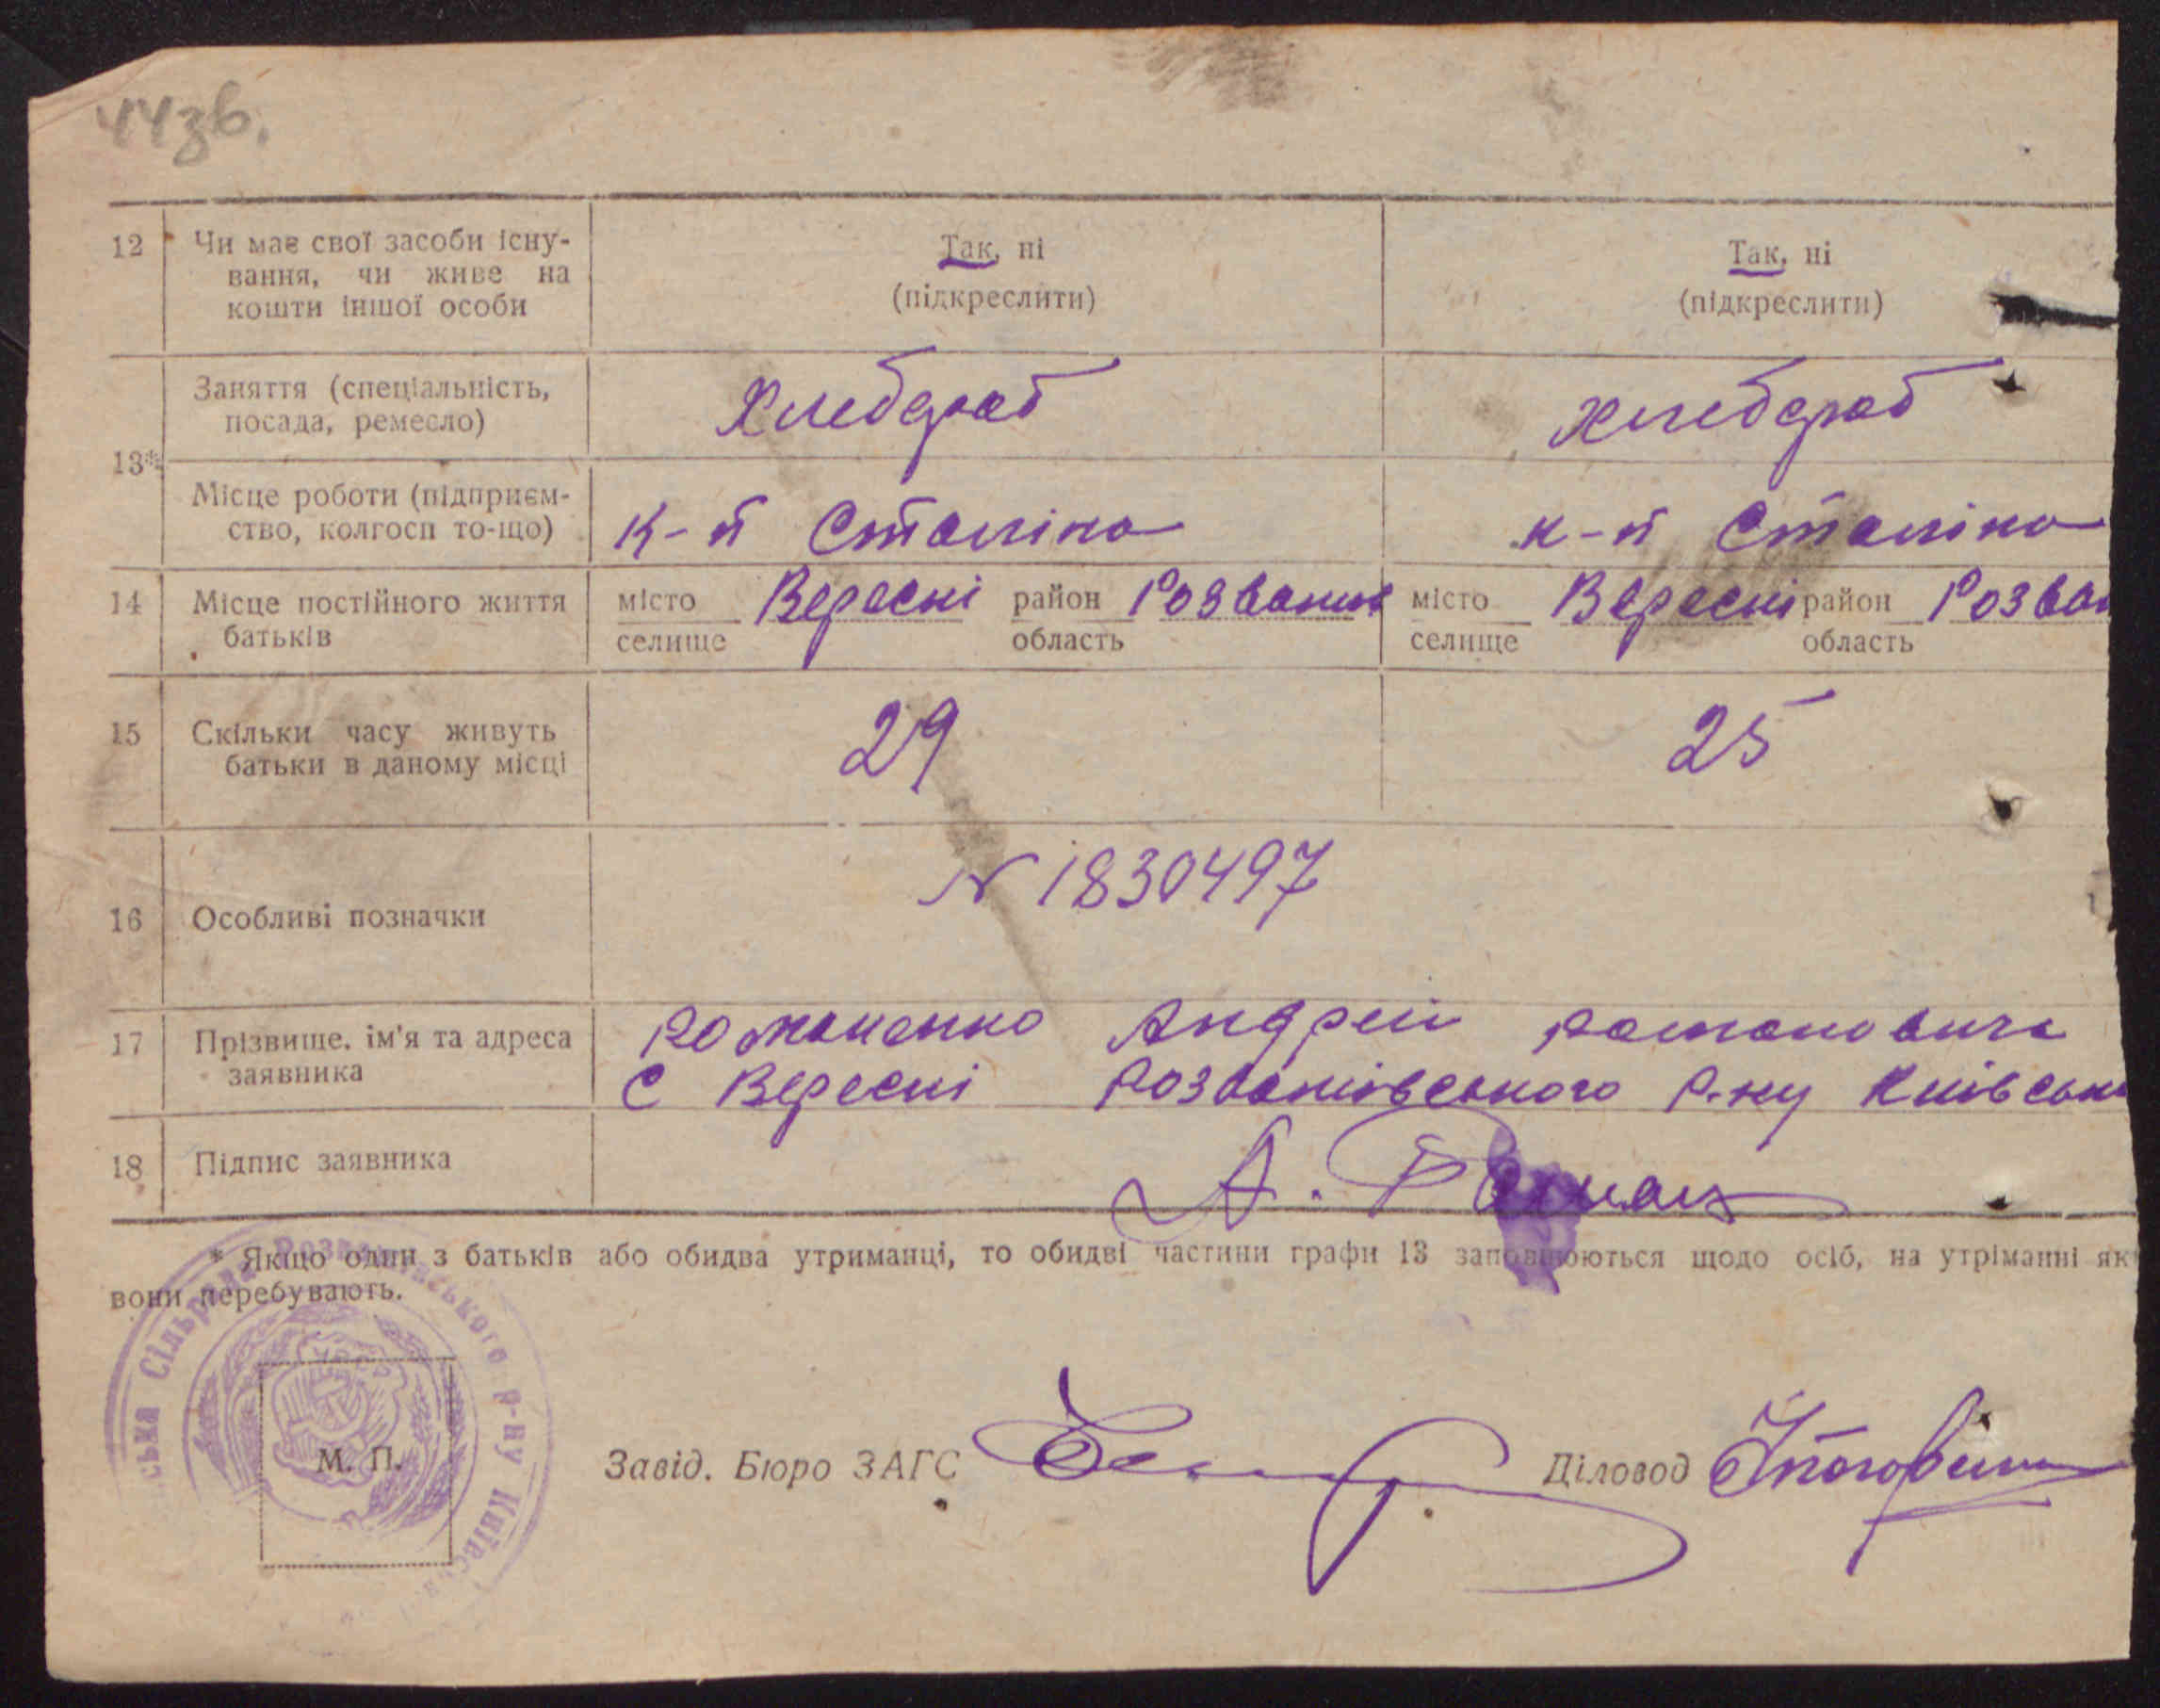 44зв.
12 Чи має свої засоби існу- Так, ні Так, ні
вання, чи живе на (підкреслити) (підкреслити)
кошти іншої особи
Заняття (спеціальність, Хлебораб хлебораб
посада, ремесло)
13*
Місце роботи (підприєм- к-п Сталіна к-п Сталіна
ство, колгосп то-що)
14 Місце постійного життя місто Вересні район Розваж місто Вересні район Розваж
батьків селище область селище область
15 Скільки часу живуть 29 25
батьки в даному місці
16 Особливі позначки N 1830497
17 Прізвище, ім'я та адреса Романенко Андрей Романович
заявника С Вересні Розважівського р-ну Київськ
18 Підпис заявника А. Роман
* Якщо один з батьків або обидва утриманці, то обидві частини графи 13 заповнюються щодо осіб, на утріманні як
вони перебувають.
ська Сільрада Розважівського р-ну Київс
М. П.
Завід. Бюро ЗАГС Діловод